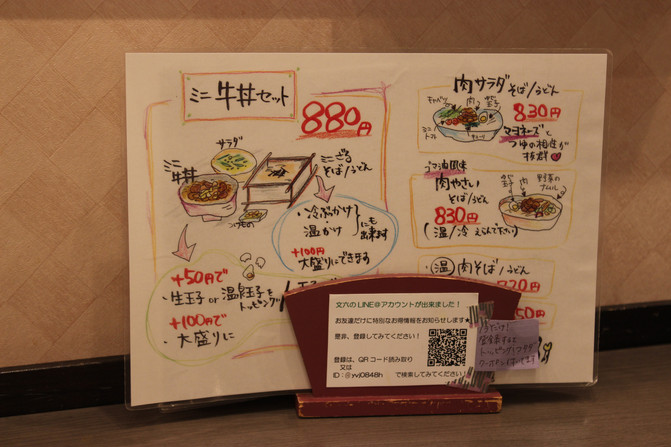 ミニ牛丼セット
880円
サラダ
ミニ
牛丼
ミニざる
そば/うどん
つけもの
・冷ぶっかけ
・温かけ
にも
出来ます
+100円
大盛りにできます
+50円で
・生玉子 or 温泉玉子を
トッピング
+100円で
・大盛りに
肉サラダそば/うどん
キャベツ
肉
ミニ
トマト
830円
マヨネーズと
つゆの相性が
抜群
ラー油風味
肉やさい
そば/うどん
830円
(温/冷 えらんで下さい)
肉
野菜の
ナムル
・温 肉そば/うどん
720円
50円
文六のLINE@アカウントが出来ました!
お友達だけに特別なお得情報をお知らせします★
是非、登録してみてください!
登録は、QRコード読み取り
又は
ID:@yvj0848h で検索してみてください!
今だけ!